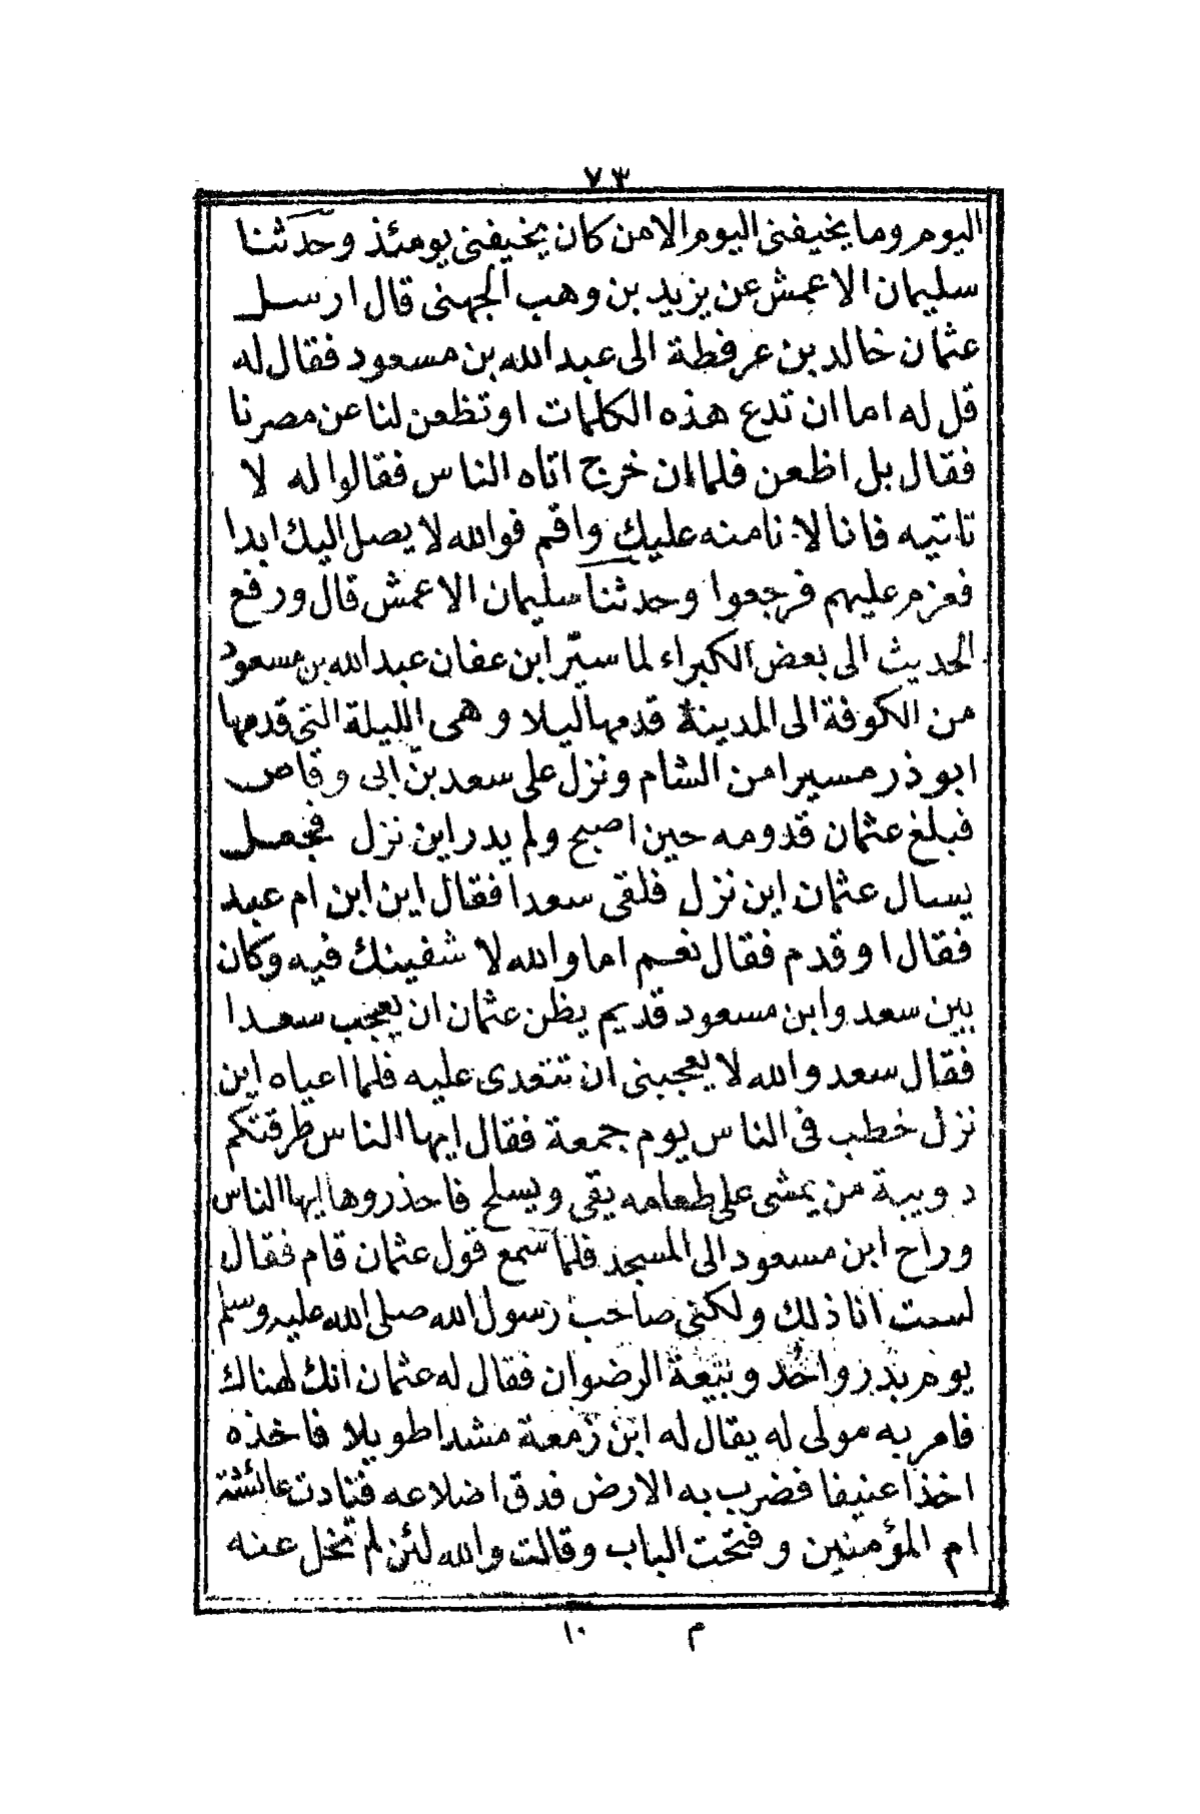 ٧٣
اليوم وما يخيفنى اليوم الا من كان يخيفنى يومئذ وحدثنا
سليمان الاعمش عن يزيد بن وهب الجهنى قال ارسل
عثمان خالد بن عرفطة الى عبد الله بن مسعود فقال له
قل له اما ان تدع هذه الكلمات او تظعن لنا عن مصرنا
فقال بل اظعن فلما ان خرج اتاه الناس فقالوا له لا
تاتيه فانا لا نامنه عليك واقم فوالله لا يصل اليك ابدا
فعزم عليهم فرجعوا وحدثنا سليمان الاعمش قال ورفع
الحديث الى بعض الكبراء لما سير ابن عفان عبد الله بن مسعود
من الكوفة الى المدينة قدمها ليلا وهى الليلة التى قدمها
ابو ذر مسيرا من الشام ونزل على سعد بن ابى وقاص
فبلغ عثمان قدومه حين اصبح ولم يدر اين نزل فجعل
يسال عثمان اين نزل فلقى سعدا فقال اين ابن ام عبد
فقال او قدم فقال نعم اما والله لا شفينك فيه وكان
بين سعد وابن مسعود قديم يظن عثمان ان يعجب سعدا
فقال سعد والله لا يعجبنى ان تتعدى عليه فلما اعياه اين
نزل خطب فى الناس يوم جمعة فقال ايها الناس طرقتكم
دويبة من يمشى على طعامه يقى ويسلح فاحذروها ايها الناس
وراح ابن مسعود الى المسجد فلما سمع قول عثمان قام فقال
لست انا ذلك ولكنى صاحب رسول الله صلى الله عليه وسلم
يوم بدر واحُد وبيعة الرضوان فقال له عثمان انك لهناك
فامر به مولى له يقال له ابن زمعة مشدا طويلا فاخذه
اخذا عنيفا فضرب به الارض فدق اضلاعه فنادت عائشة
ام المؤمنين وفتحت الباب وقالت والله لئن لم تخل عنه
م ١٠